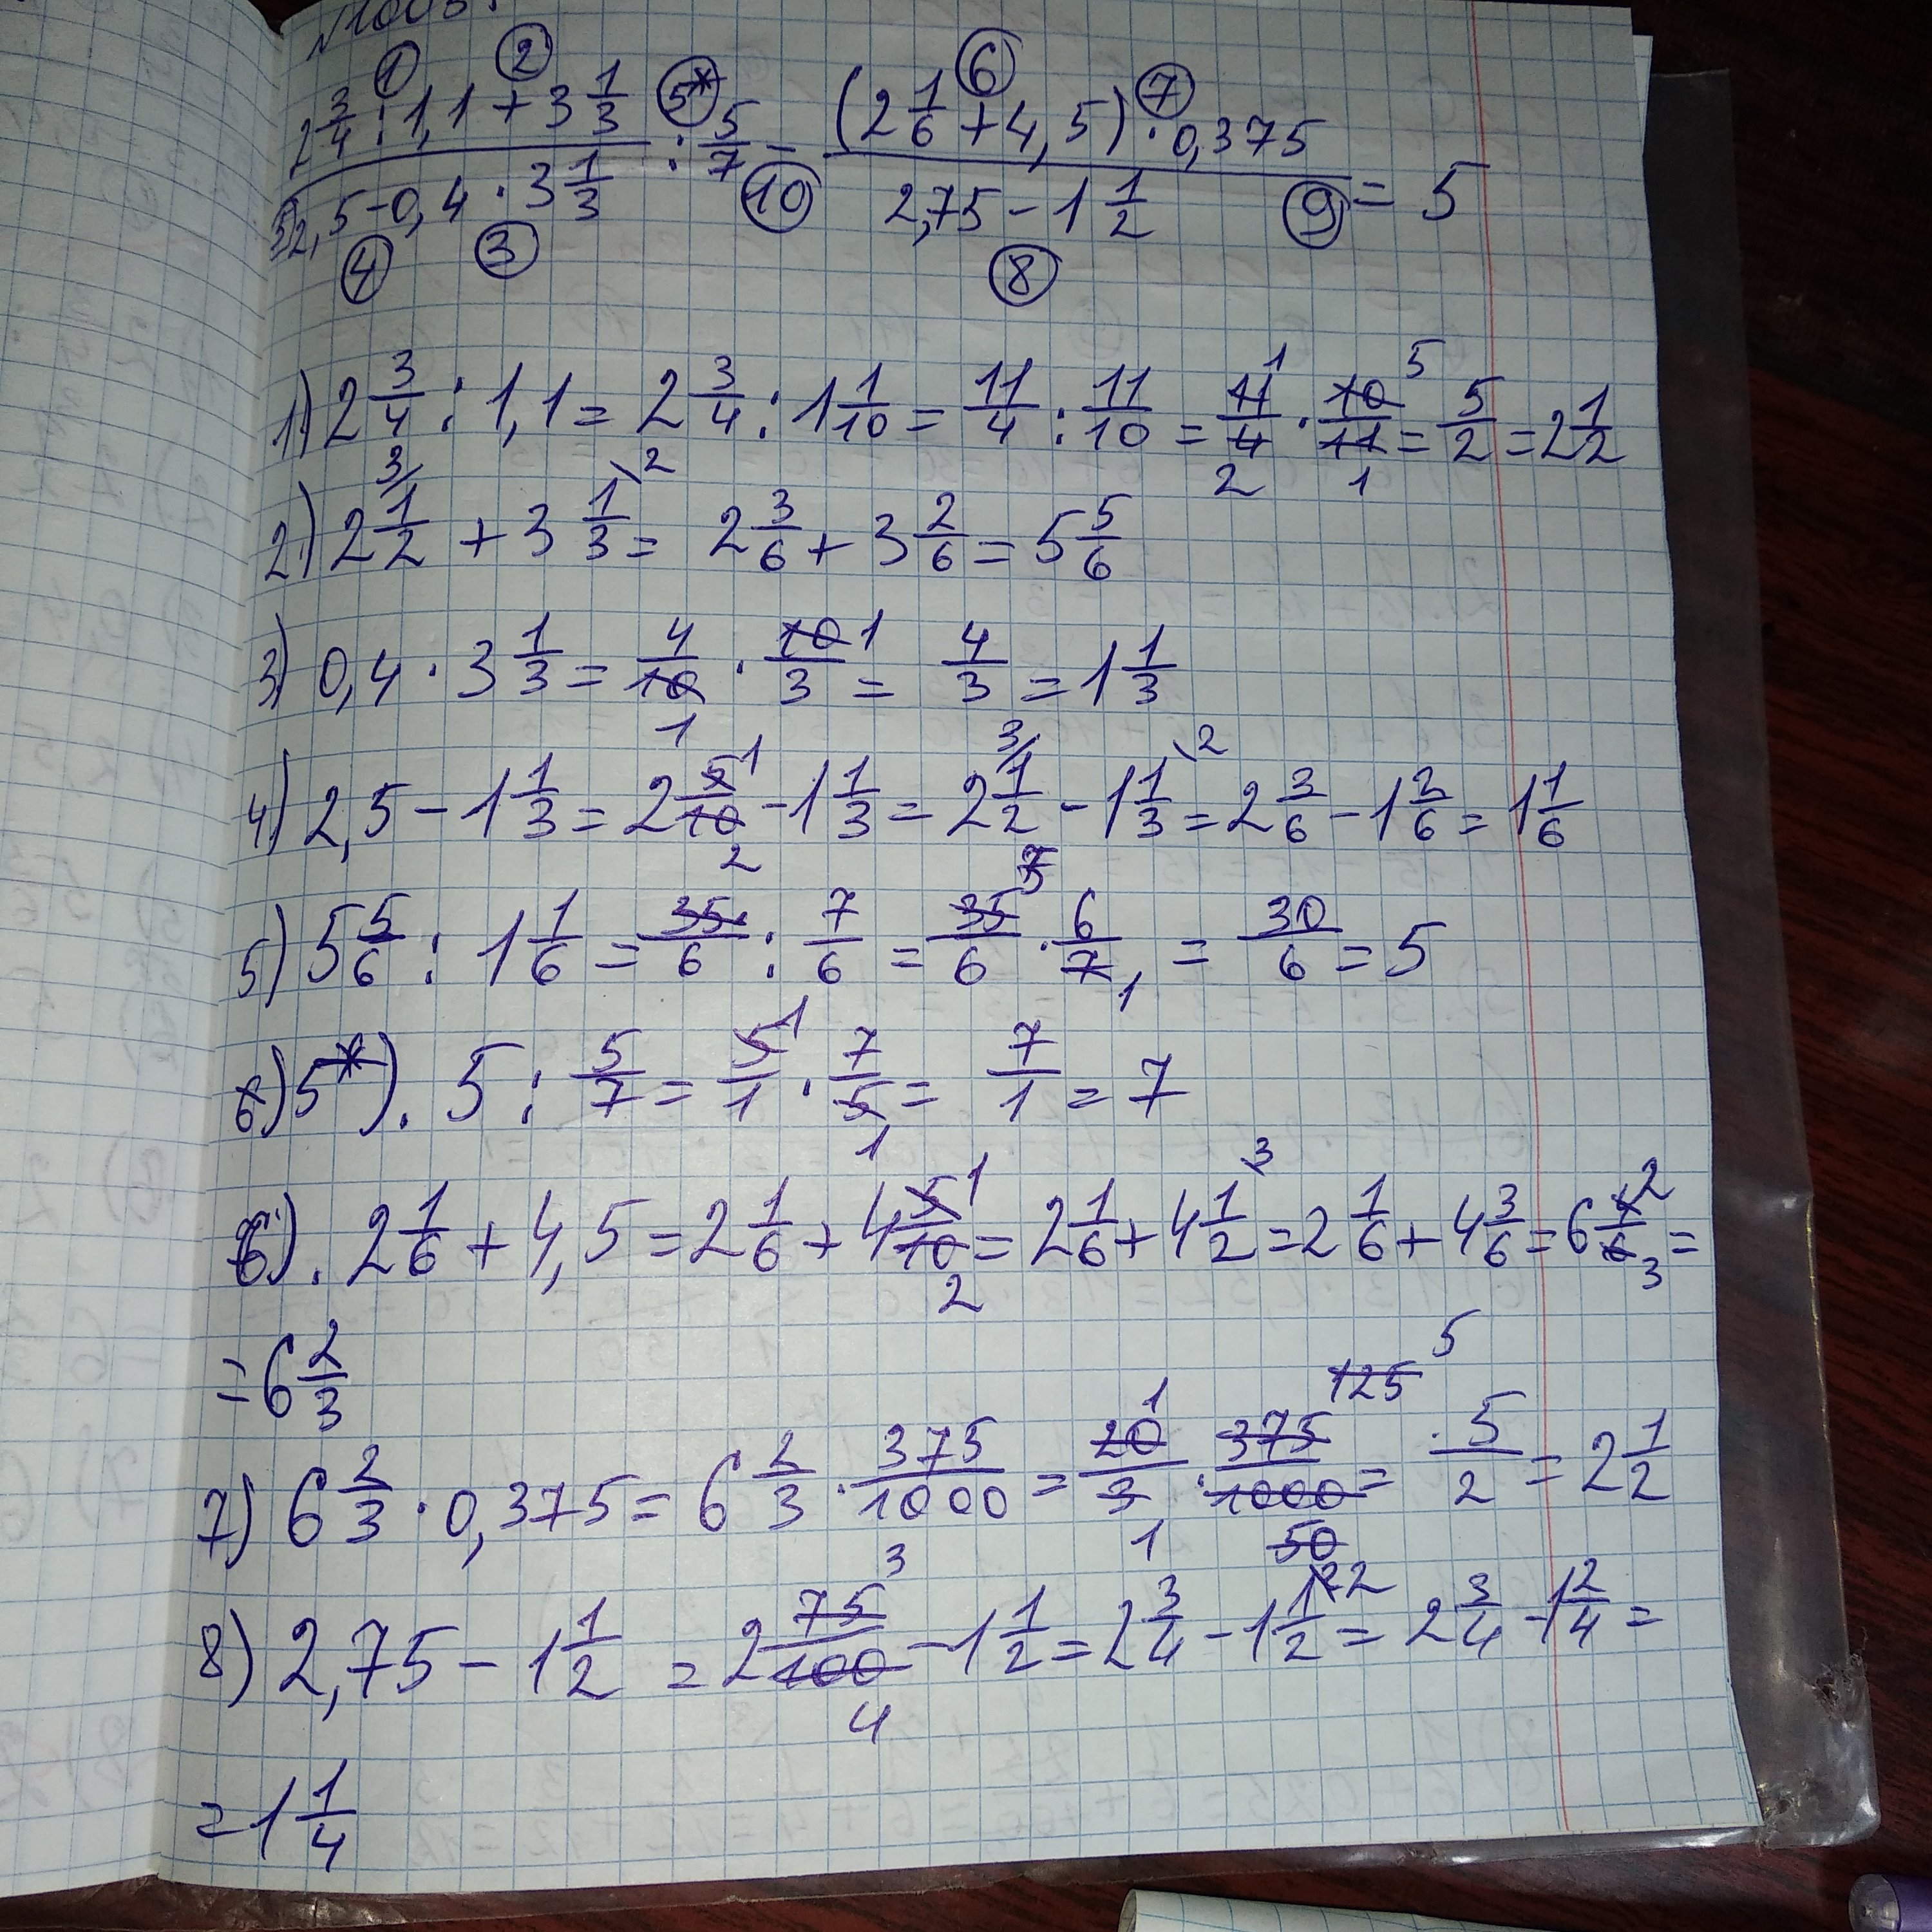 ① ② 5* ⑥ ⑦
2 3/4 : 1,1 + 3 1/3 : 5/7 - (2 1/6 + 4,5) · 0,375
2,5 - 0,4 · 3 1/3 ⑩ 2,75 - 1 1/2 ⑨ = 5
④ ③ ⑧
1) 2 3/4 : 1,1 = 2 3/4 : 1 1/10 = 11/4 : 11/10 = 11/4 · 10/11 = 5/2 = 2 1/2
2) 2 1/2 + 3 1/3 = 2 3/6 + 3 2/6 = 5 5/6
3) 0,4 · 3 1/3 = 4/10 · 10/3 = 4/3 = 1 1/3
4) 2,5 - 1 1/3 = 2 5/10 - 1 1/3 = 2 1/2 - 1 1/3 = 2 3/6 - 1 2/6 = 1 1/6
5) 5 5/6 : 1 1/6 = 35/6 : 7/6 = 35/6 · 6/7 = 30/6 = 5
5*). 5 : 5/7 = 5/1 · 7/5 = 7/1 = 7
6). 2 1/6 + 4,5 = 2 1/6 + 4 5/10 = 2 1/6 + 4 1/2 = 2 1/6 + 4 3/6 = 6 4/6 =
= 6 2/3
7) 6 2/3 · 0,375 = 6 2/3 · 375/1000 = 20/3 · 375/1000 = 5/2 = 2 1/2
8) 2,75 - 1 1/2 = 2 75/100 - 1 1/2 = 2 3/4 - 1 1/2 = 2 3/4 - 1 2/4 =
= 1 1/4